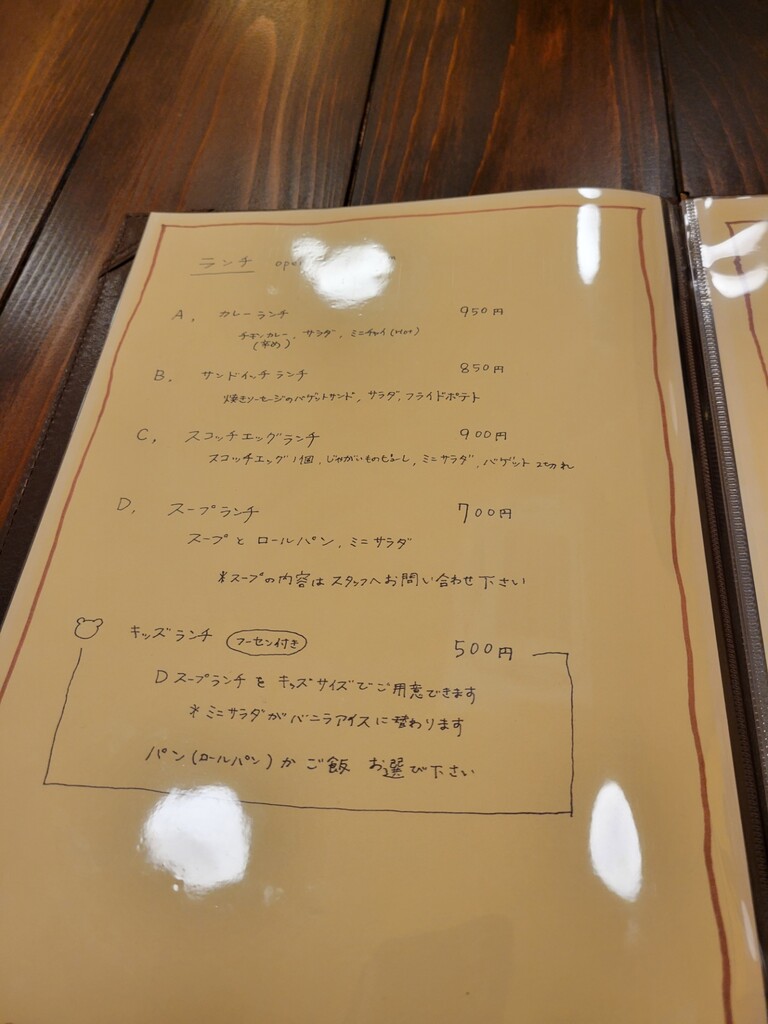 ランチ
A. カレーランチ 950円
チキンカレー, サラダ, ミニチャイ
(辛め)
B. サンドイッチランチ 850円
焼きソーセージのバゲットサンド, サラダ, フライドポテト
C. スコッチエッグランチ 900円
スコッチエッグ1個, じゃがいものピューレ, ミニサラダ, バゲット 2切れ
D. スープランチ 700円
スープと ロールパン, ミニサラダ
*スープの内容は スタッフへお問い合わせ下さい
キッズランチ フーセン付き 500円
D スープランチを キッズサイズでご用意できます
*ミニサラダがバニラアイスに替わります
パン(ロールパン)か ご飯 お選び下さい